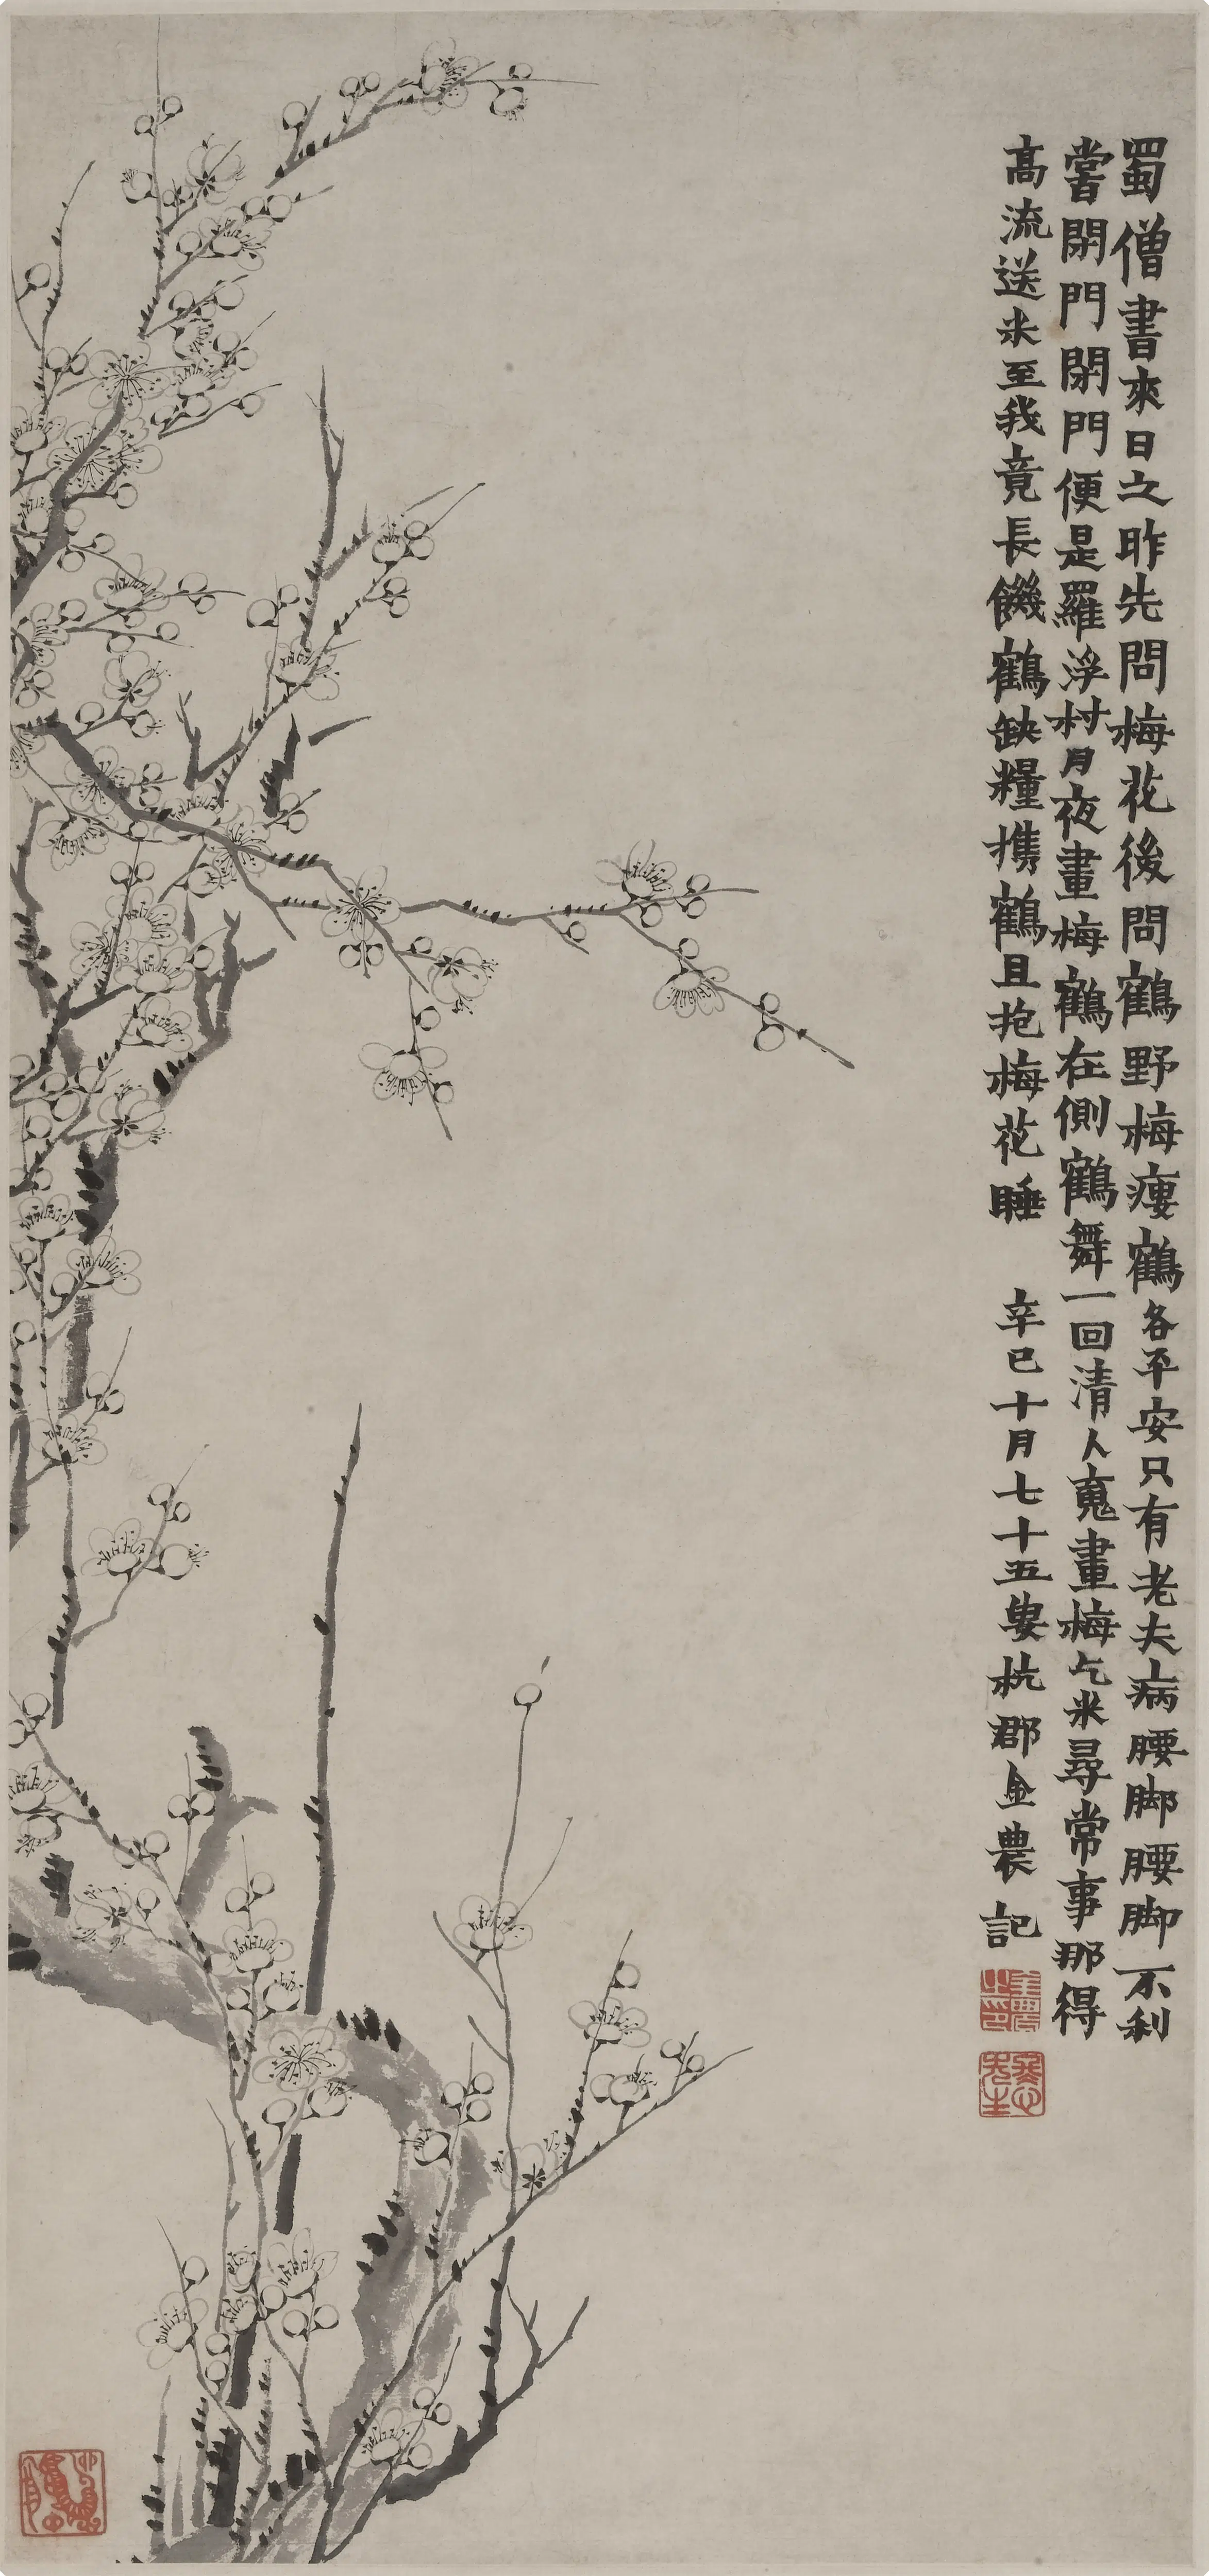 蜀僧書來日之昨先問梅花後問鶴野梅瘻鶴各平安只有老夫病腰脚腰脚不利
嘗閉門閉門便是羅浮村月夜畫梅鶴在側鶴舞一回清人䰟畫梅乞米尋常事那得
高流送米至我竟長饑鶴缺糧携鶴且抱梅花睡 辛巳十月七十五叟杭郡金農記